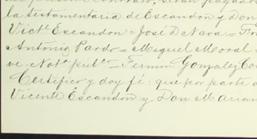 la testamentaria de Escandon y Don
Vict.e Escandon - José De Nava - Fran
Antonio Pardo - Miguel Moral -
ve Not.o pub.co - Fermin Gonzalez Cos
Certifico y doy fé: que por parte d
Vicente Escandon y Don Marian